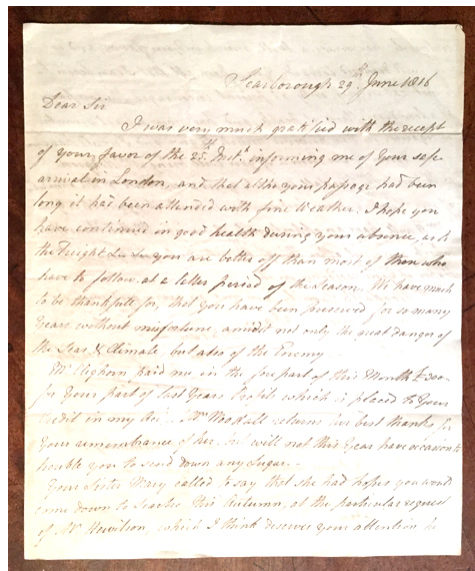 Scarborough 29th June 1816
Dear Sir
I was very much gratified with the receipt
of your favor of the 25th Inst. informing me of your safe
arrival in London, and that altho your passage had been
long it had been attended with fine Weather. I hope you
have continued in good health during your absence, as to
the Freight you are better off than most of those who
have to follow, at a later period of the Season. We have much
to be thankfull for, that you have been preserved for so many
Years without misfortune, amidst not only the great danger of
the Seas & Climate but also of the Enemy
Mr Cleghorn paid me in the fore part of this Month
for your part of last Years Profits which is placed to your
Credit in my Acct. Mrs Woodall returns her best thanks for
your remembrance of her, but will not this Year have occasion to
trouble you to send down any Sugar.
Your Sister Mary called to say that she had hopes you would
come down to Scarbro this Autumn, at the particular request
of Mr Howilson, which I think deserves your attention